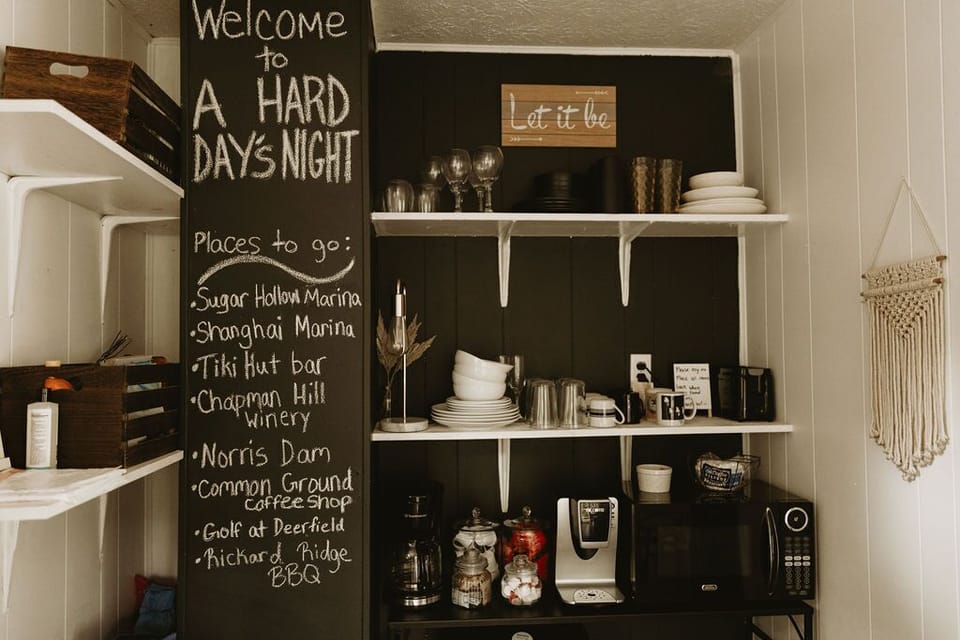 Welcome
to
A HARD
DAY'S NIGHT
Places to go:
• Sugar Hollow Marina
• Shanghai Marina
• Tiki Hut bar
• Chapman Hill
winery
• Norris Dam
• Common Ground
coffee shop
• Golf at Deerfield
• Rickard Ridge
BBQ
Let it be